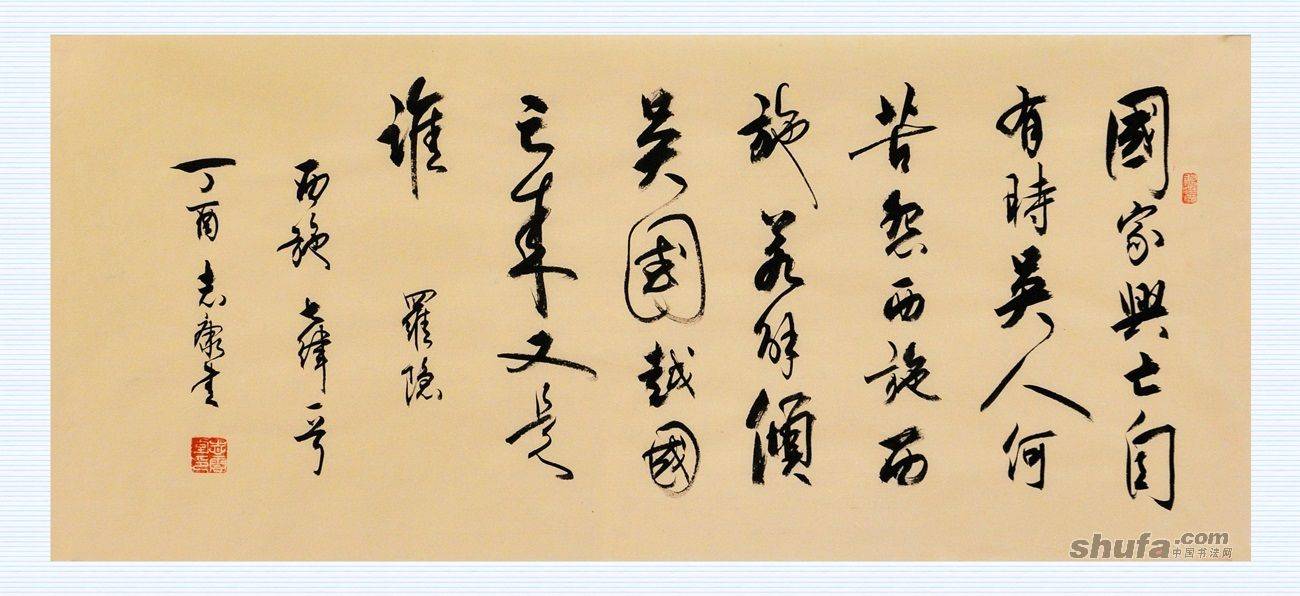 國家興亡自
有時吳人何
苦怨西施西
施若解傾
吳國越國
亡來又是
誰 羅隐
西施 七律一首
丁酉 志康書
shufa.com
中国书法网